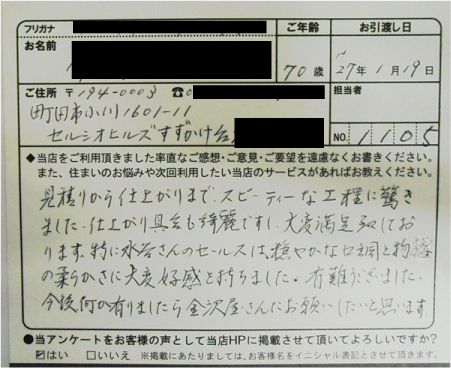 フリガナ ご年齢 お引渡し日
お名前 70歳 27年1月19日
ご住所 〒194-0003 ☎0 担当者
町田市小川1601-11
セルシオヒルズすずかけ台 NO. 1105
◆当店をご利用頂きました率直なご感想・ご意見・ご要望を遠慮なくお書きください。
また、住まいのお悩みや次回利用したい当店のサービスがあればお教えください。
見積りから仕上がりまで、スピーディーな工程に驚き
ました。仕上がり具合も綺麗ですし、大変満足致してお
ります。特に水谷さんのセールスは、穏やかな口調と物腰
の柔らかさに大変好感を持ちました。有難うございました。
今後、何か有りましたら金沢屋さんにお願いしたいと思います。
●当アンケートをお客様の声として当店HPに掲載させて頂いてよろしいですか?
☑はい □いいえ ※掲載にあたりましては、お客様名をイニシャル表記とさせて頂きます。